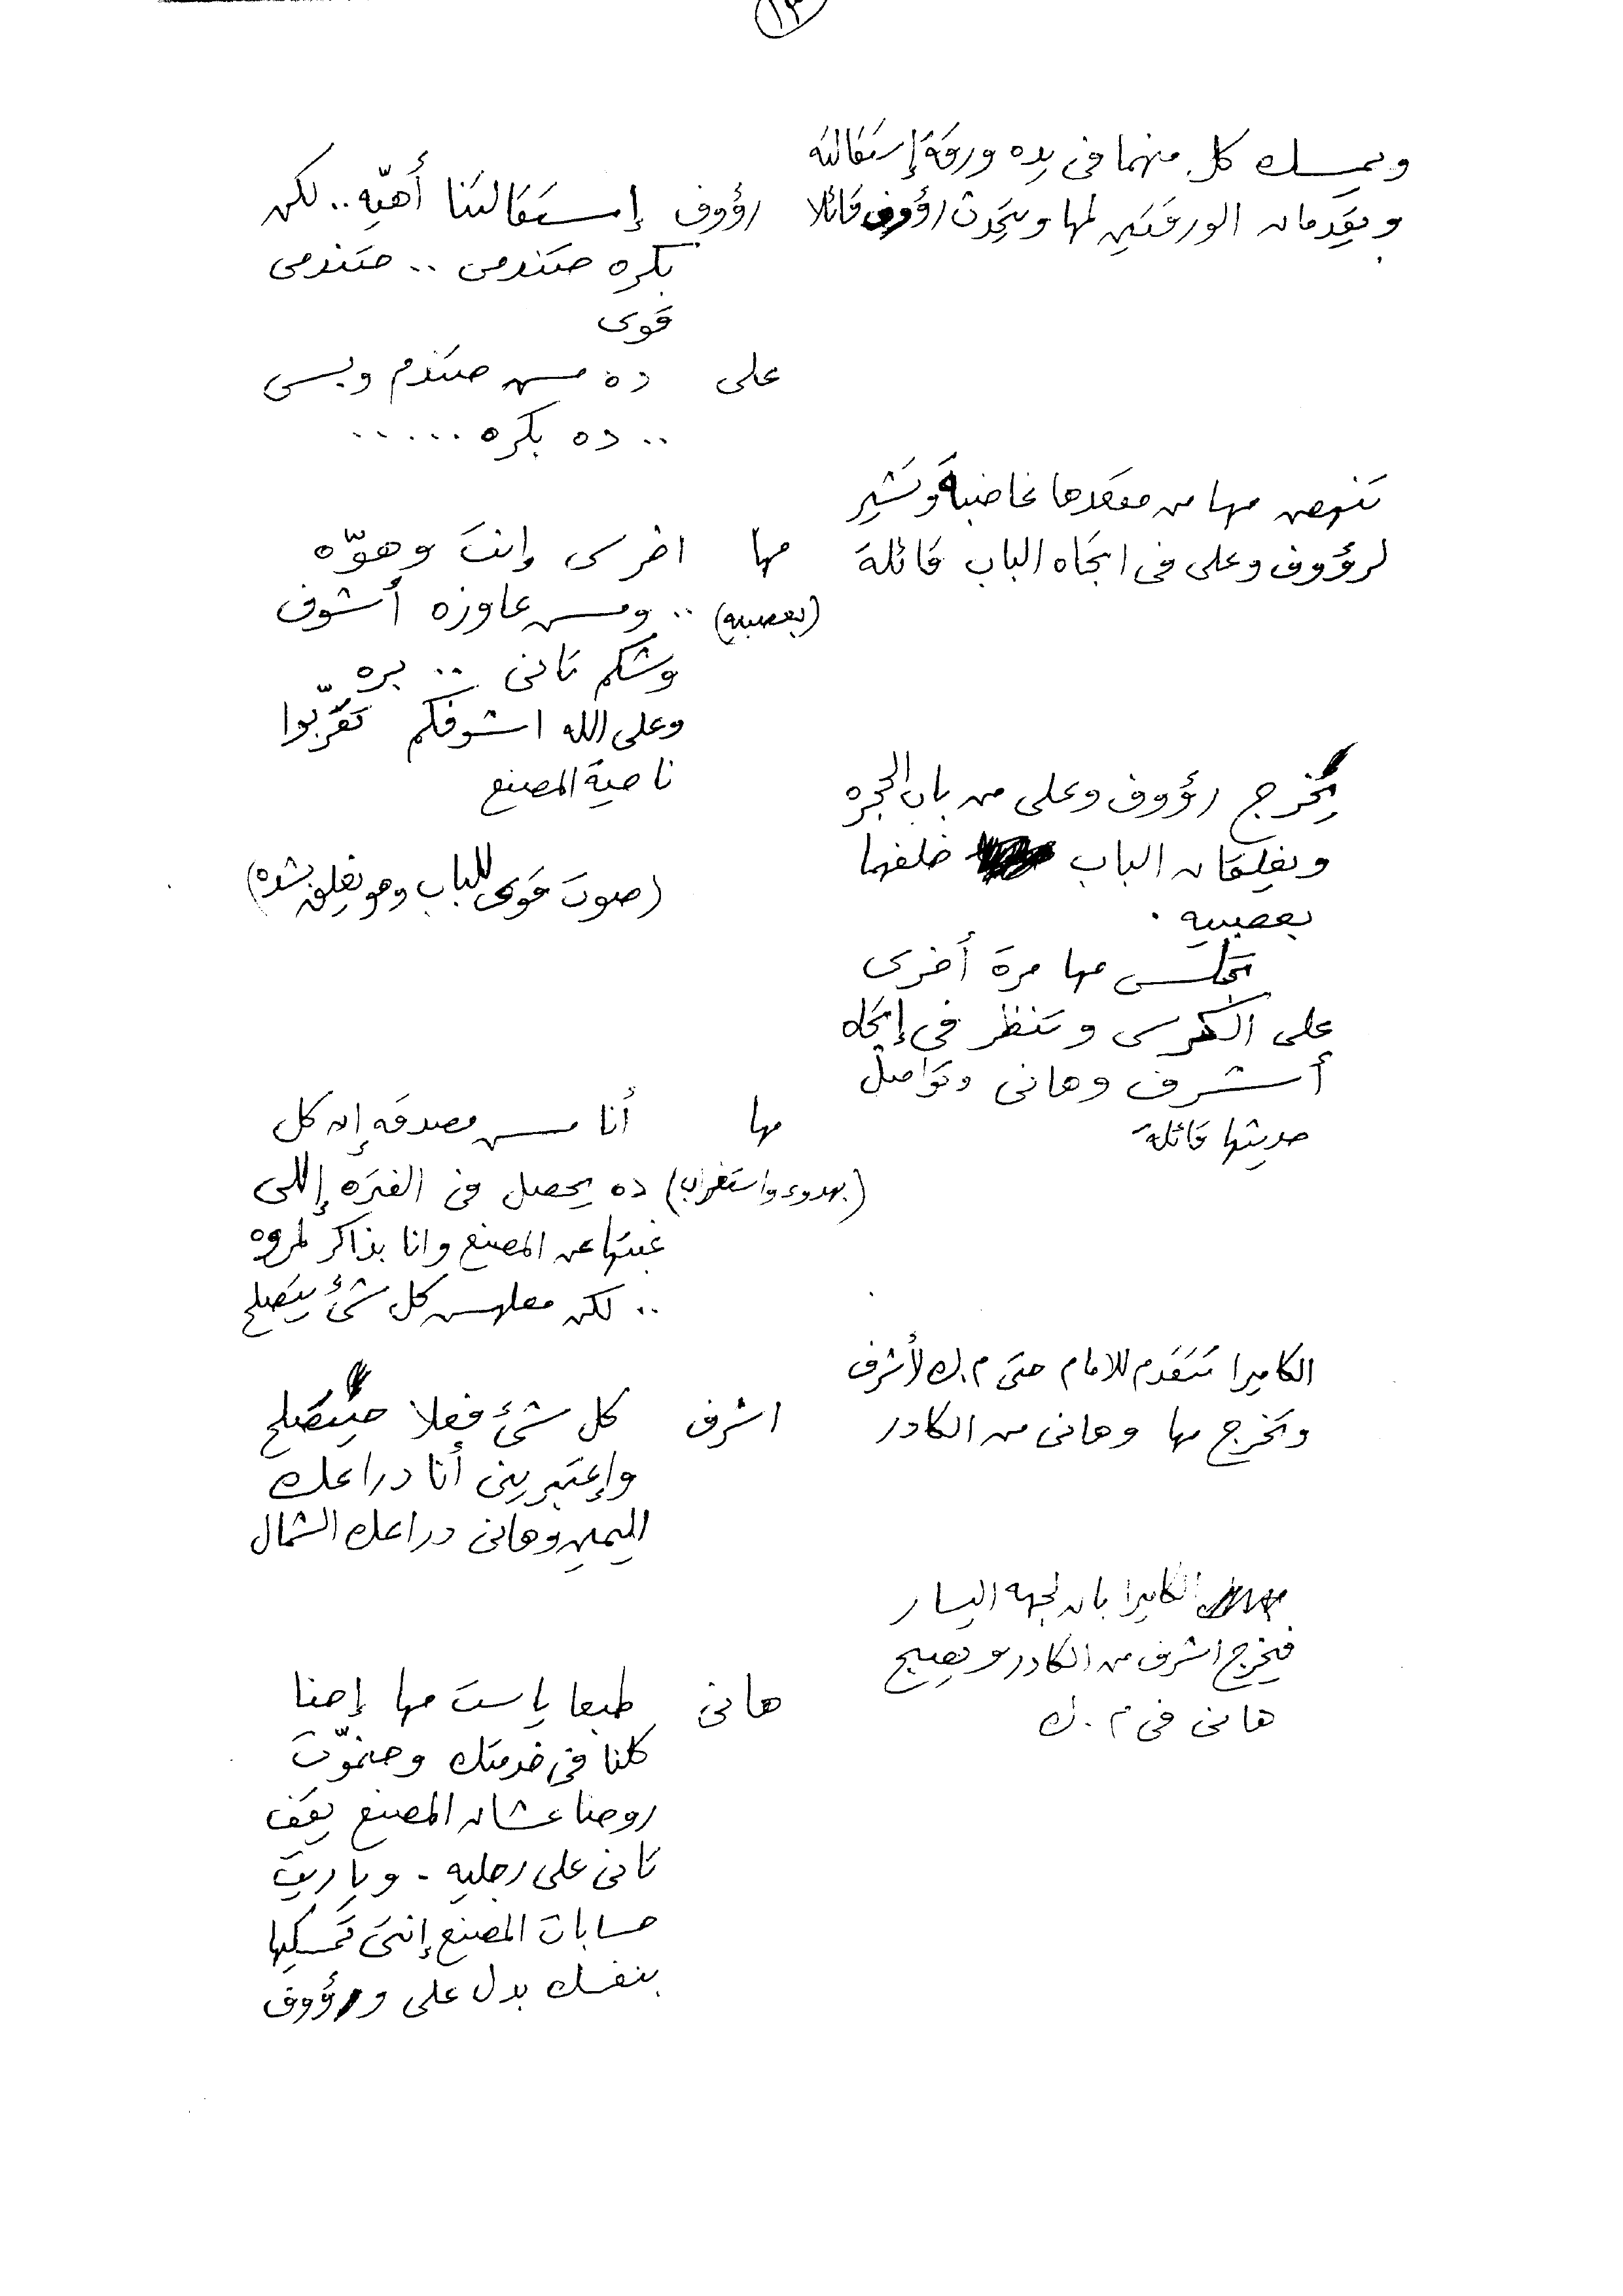 ويمسك كل منهما فى يده ورقة إستقالته
ويقدمان الورقتين لمها ويتحدث رؤوف قائلا
رؤوف إستقالتنا أهيّه .. لكن
بكره حتندمى .. حتندمى
قوى
على ده مش حتندم وبس
.. ده بكره ......
تنهض مها من مقعدها غاضبة وتشير
لرؤوف وعلى فى اتجاه الباب قائلة
مها اخرس وانت وهوّه
(بعصبيه) .. ومش عاوزه أشوف
وشكم تانى .. بره
وعلى الله اشوفكم تقرّبوا
ناحية المصنع
يخرج رؤوف وعلى من باب الحجره
ويغلقان الباب خلفهما
بعصبيه .
(صوت قوى للباب وهو يغلق بشده)
تجلس مها مرة أخرى
على الكرسى وتنظر فى إتجاه
أشرف وهانى وتواصل
حديثها قائلة
مها أنا مش مصدقه إن كل
(بهدوء واستغراب) ده يحصل فى الفتره إللى
غبتها عن المصنع وانا بذاكر لمروه
.. لكن معلهش كل شئ يتصلح
الكاميرا تتقدم للامام حتى م.ك لأشرف
وتخرج مها وهانى من الكادر
اشرف كل شئ فعلا حيتصلح
وإعتبرينى أنا دراعك
اليمين وهانى دراعك الشمال
الكاميرا بان لجهه اليسار
فيخرج اشرف من الكادر ويصبح
هانى فى م.ك
هانى طبعا ياست مها إحنا
كلنا فى خدمتك وحنموّت
روحنا عشان المصنع يقف
تانى على رجليه . وياريت
حسابات المصنع إنتى تمسكيها
بنفسك بدل على ورؤوف